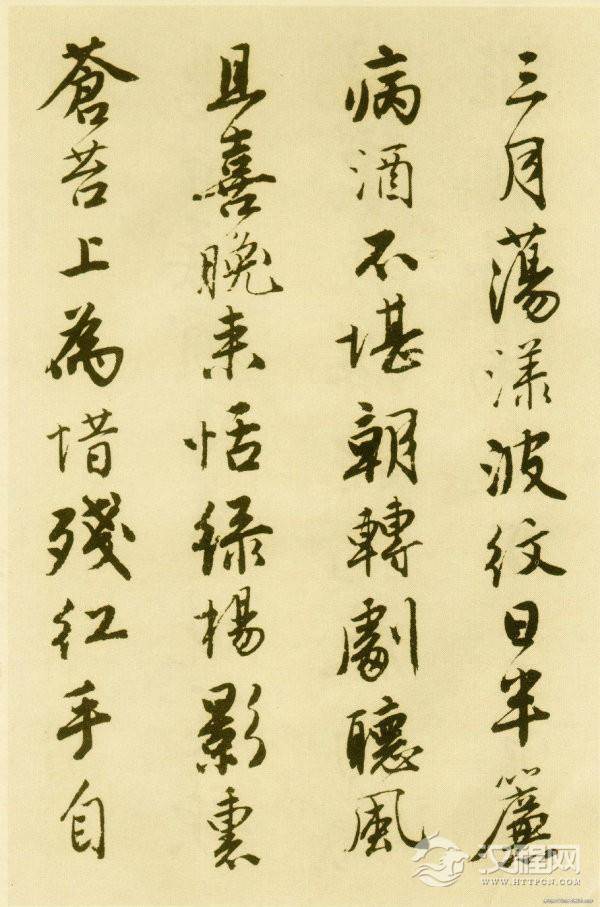 三月蕩漾波紋日半簾
病酒不堪朝轉劇聽風
且喜晚來恬綠楊影裏
蒼苔上為惜殘紅手自
汉程网
WWW.HTTPCN.COM